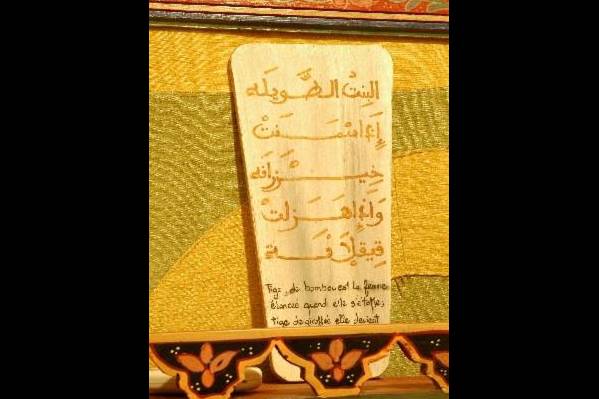 البِنتْ الطَّويلَه
إِذَا اسْمَنَتْ
خِيزْرَانَه
وَإِذَا هَزَلَتْ
قِيقْلَانَة
Tige de bambou est la femme
élancée quand elle s'étoffe;
tige de giroflée elle devient